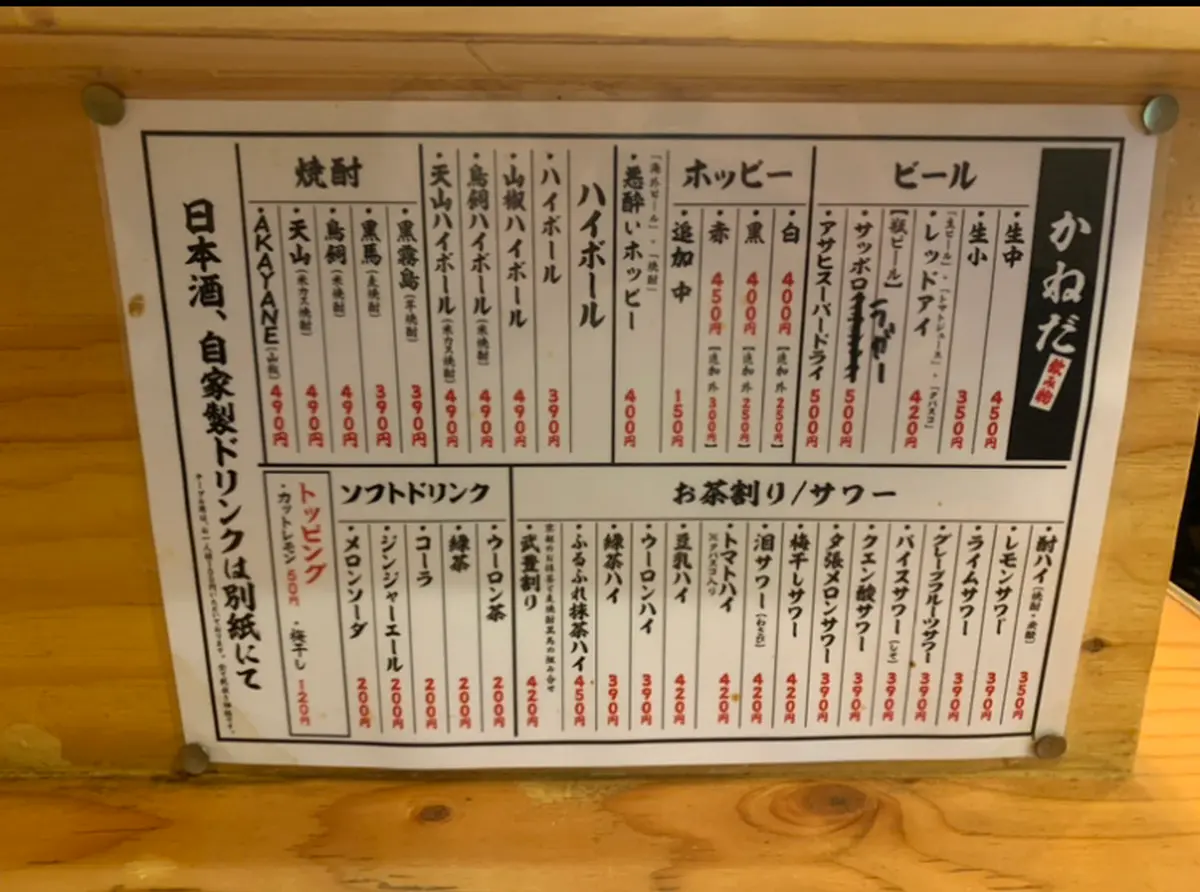 かねだ
飲み物
ビール
・生中 450円
・生小 350円
「生ビール」・「トマトジュース」・「タバスコ」
・レッドアイ 420円
【瓶ビール】
・サッポロラガー 500円
・アサヒスーパードライ 500円
ホッピー
・白 400円【追加 外 250円】
・黒 400円【追加 外 250円】
・赤 450円【追加 外 300円】
・追加 中 150円
「海外ビール」・「焼酎」
・悪酔いホッピー 400円
ハイボール
・ハイボール 390円
・山椒ハイボール 490円
・鳥飼ハイボール(米焼酎) 490円
・天山ハイボール(米カス焼酎) 490円
焼酎
・黒霧島(芋焼酎) 390円
・黒馬(麦焼酎) 390円
・鳥飼(米焼酎) 490円
・天山(米カス焼酎) 490円
・AKAYANE(山椒) 490円
お茶割り/サワー
・酎ハイ(焼酎・炭酸) 350円
・レモンサワー 390円
・ライムサワー 390円
・グレープフルーツサワー 390円
・バイスサワー(しそ) 390円
・クエン酸サワー 390円
・夕張メロンサワー 390円
・梅干しサワー 420円
・泪サワー(わさび) 420円
・トマトハイ 420円
※タバスコ入り
・豆乳ハイ 420円
・ウーロンハイ 390円
・緑茶ハイ 390円
・ふるふれ抹茶ハイ 450円
京都のお抹茶で麦焼酎黒馬の組み合せ
・武豊割り 420円
ソフトドリンク
・ウーロン茶 200円
・緑茶 200円
・コーラ 200円
・ジンジャーエール 200円
・メロンソーダ 200円
トッピング
・カットレモン 50円 ・梅干し 120円
日本酒、自家製ドリンクは別紙にて